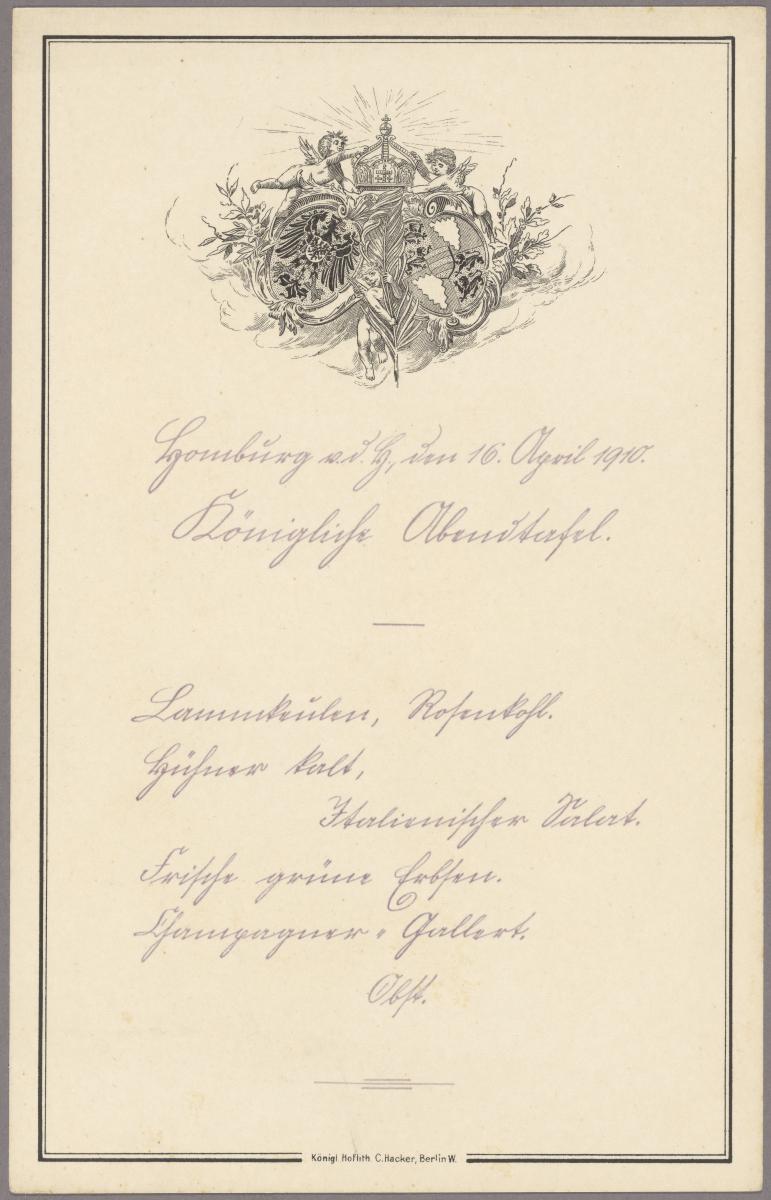 Homburg v. d. H., den 16. April 1910.
Königliche Abendtafel.
Lammkeulen, Rosenkohl.
Hühner kalt,
Italienischer Salat.
Frische grüne Erbsen.
Champagner-Gallert.
Obst.
Königl. Hoflith. C. Hacker, Berlin W.